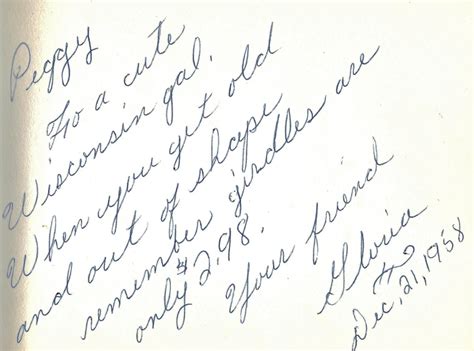 Peggy
To a cute
Wisconsin gal.
When you get old
and out of shape
remember girdles are
only $2.98.
Your friend
Gloria
Dec. 21, 1958